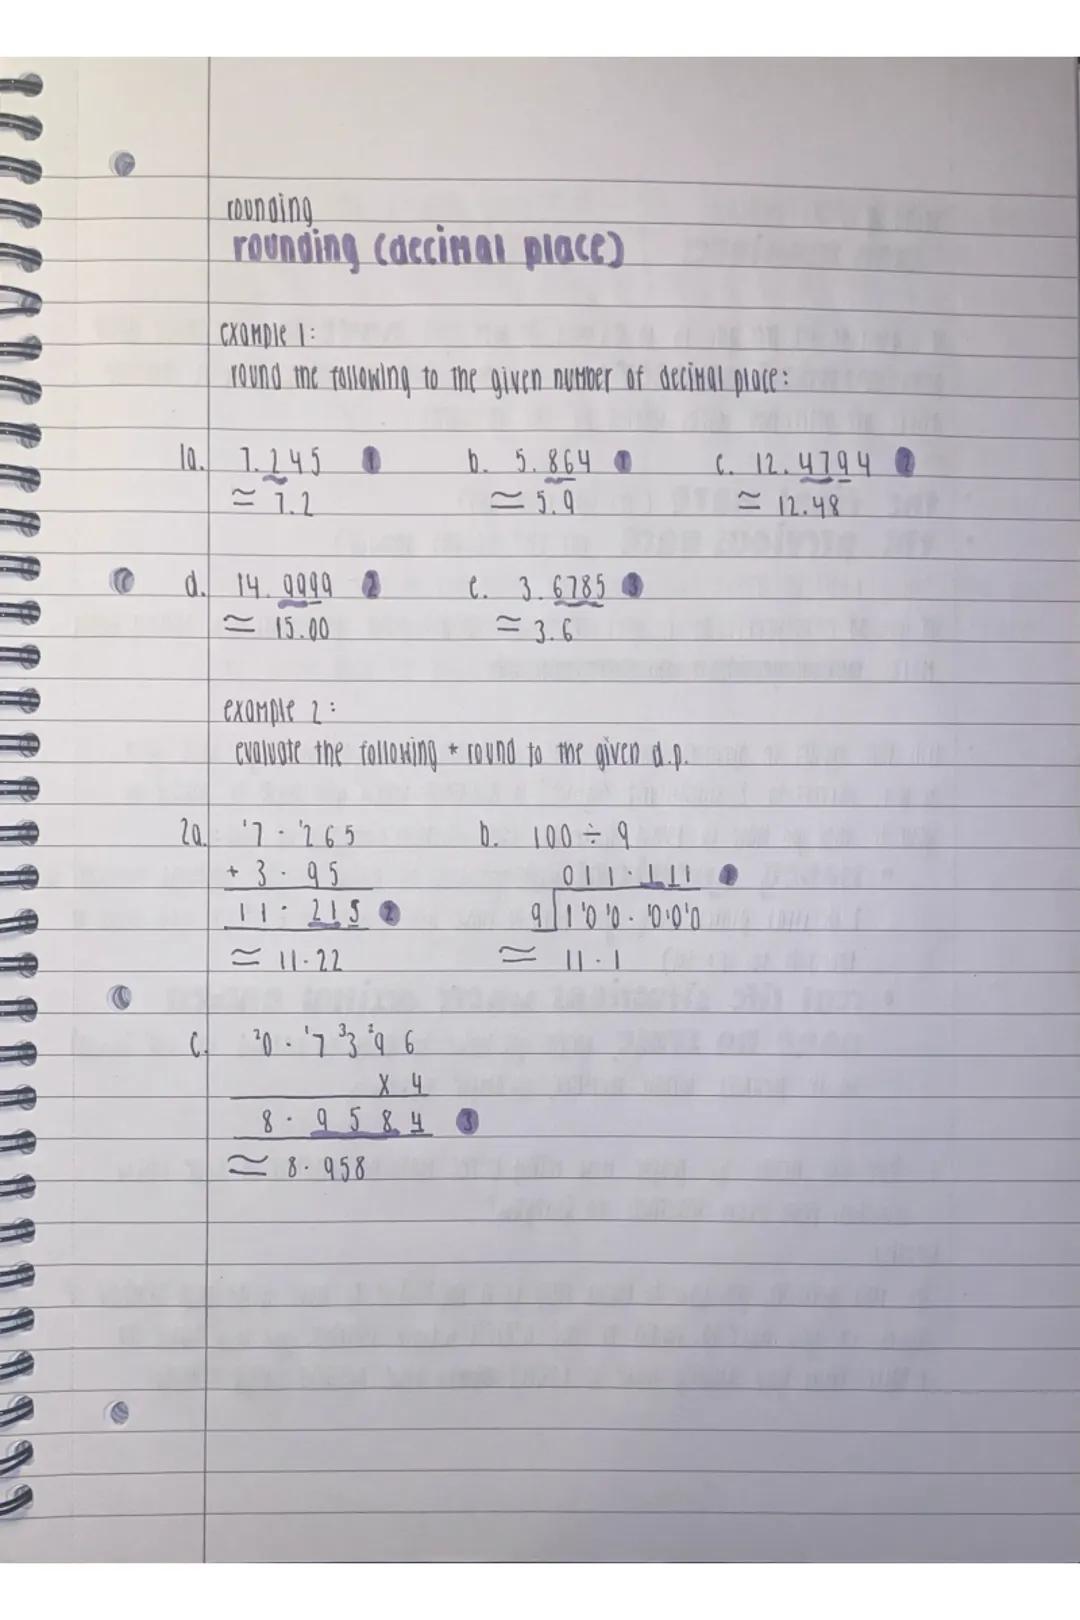 rounding
rounding (decimal place)
example 1:
round the following to the given number of decimal place:
1a. 7.245 1 b. 5.864 1 c. 12.4794 2
≈ 7.2 ≈ 5.9 ≈ 12.48
d. 14.9999 2 e. 3.6785 3
≈ 15.00 ≈ 3.6
example 2:
evaluate the following + round to the given d.p.
2a. '7.'265 b. 100 ÷ 9
+ 3.95 011.111 1
11.215 2 9 1'0'0.'0'0'0
≈ 11.22 ≈ 11.1
c. ²0.'7³3²96
x 4
8.9584 3
≈ 8.958